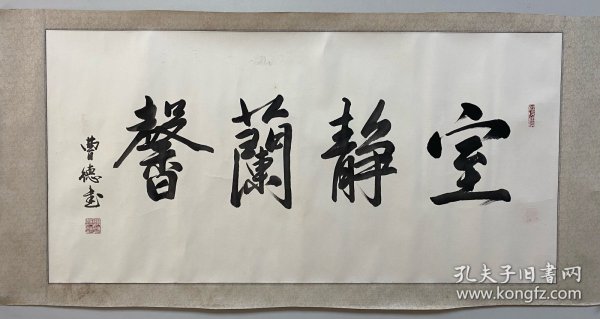 室静蘭馨
曹德書
孔夫子旧书网
www.kongfz.com